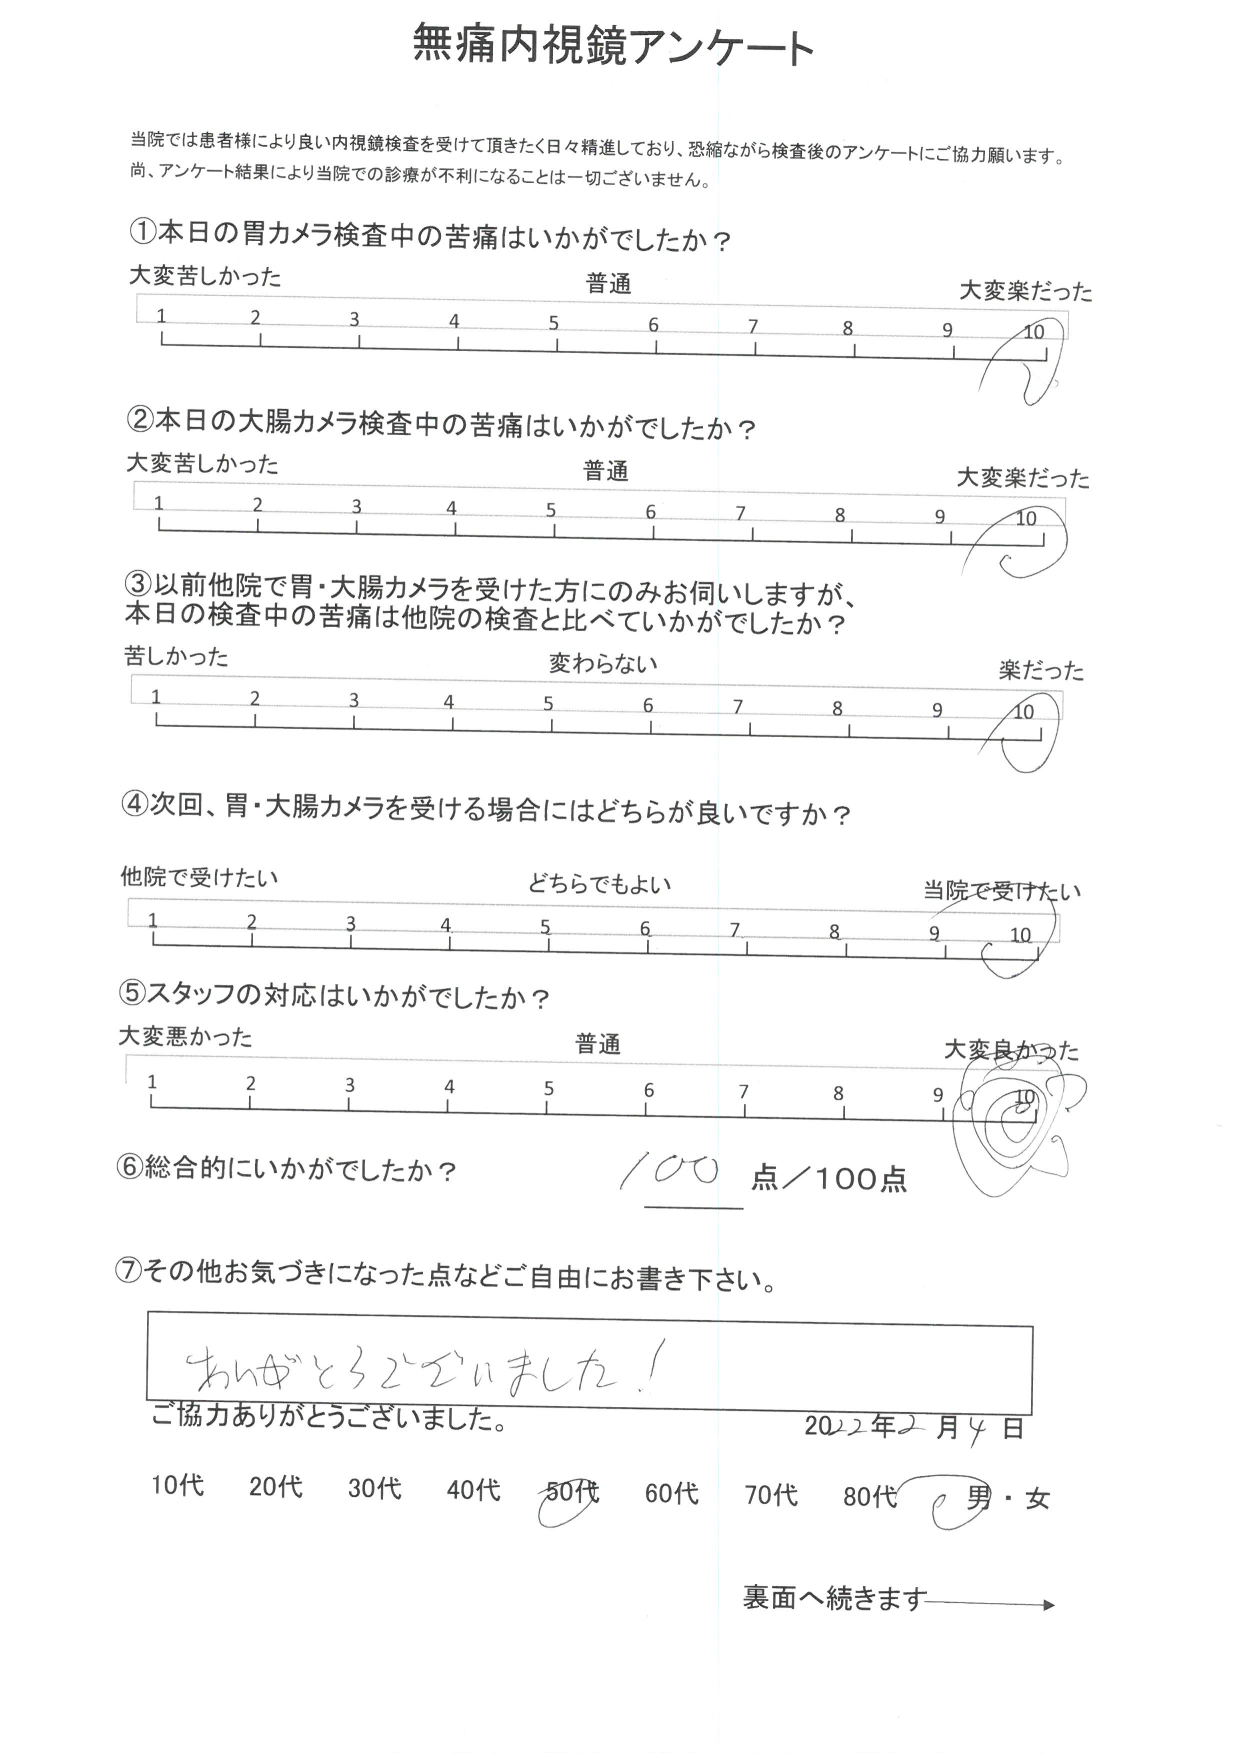 無痛内視鏡アンケート
当院では患者様により良い内視鏡検査を受けて頂きたく日々精進しており、恐縮ながら検査後のアンケートにご協力願います。
尚、アンケート結果により当院での診療が不利になることは一切ございません。
①本日の胃カメラ検査中の苦痛はいかがでしたか？
大変苦しかった 普通 大変楽だった
1 2 3 4 5 6 7 8 9 10
②本日の大腸カメラ検査中の苦痛はいかがでしたか？
大変苦しかった 普通 大変楽だった
1 2 3 4 5 6 7 8 9 10
③以前他院で胃・大腸カメラを受けた方にのみお伺いしますが、
本日の検査中の苦痛は他院の検査と比べていかがでしたか？
苦しかった 変わらない 楽だった
1 2 3 4 5 6 7 8 9 10
④次回、胃・大腸カメラを受ける場合にはどちらが良いですか？
他院で受けたい どちらでもよい 当院で受けたい
1 2 3 4 5 6 7 8 9 10
⑤スタッフの対応はいかがでしたか？
大変悪かった 普通 大変良かった
1 2 3 4 5 6 7 8 9 10
⑥総合的にいかがでしたか？ 100 点／100点
⑦その他お気づきになった点などご自由にお書き下さい。
ありがとうございました！
ご協力ありがとうございました。
2022年2月4日
10代 20代 30代 40代 50代 60代 70代 80代 男・女
裏面へ続きます